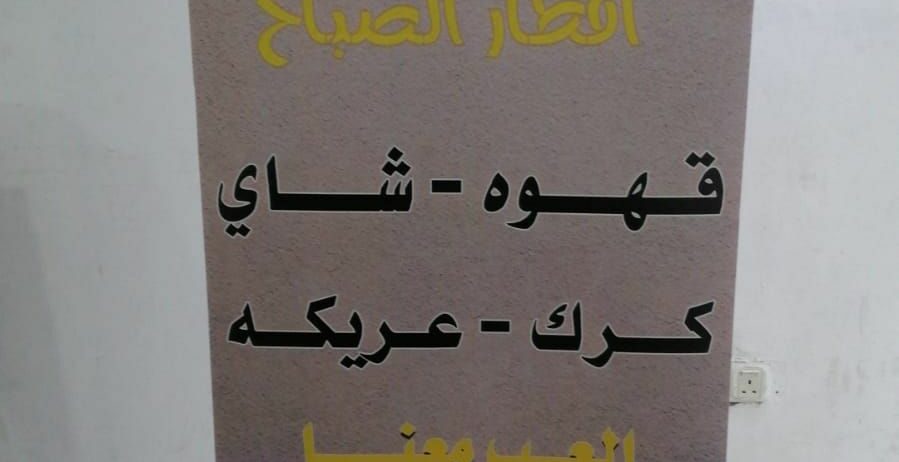 افطار الصباح
قهوه - شاي
كرك - عريكه
معنا